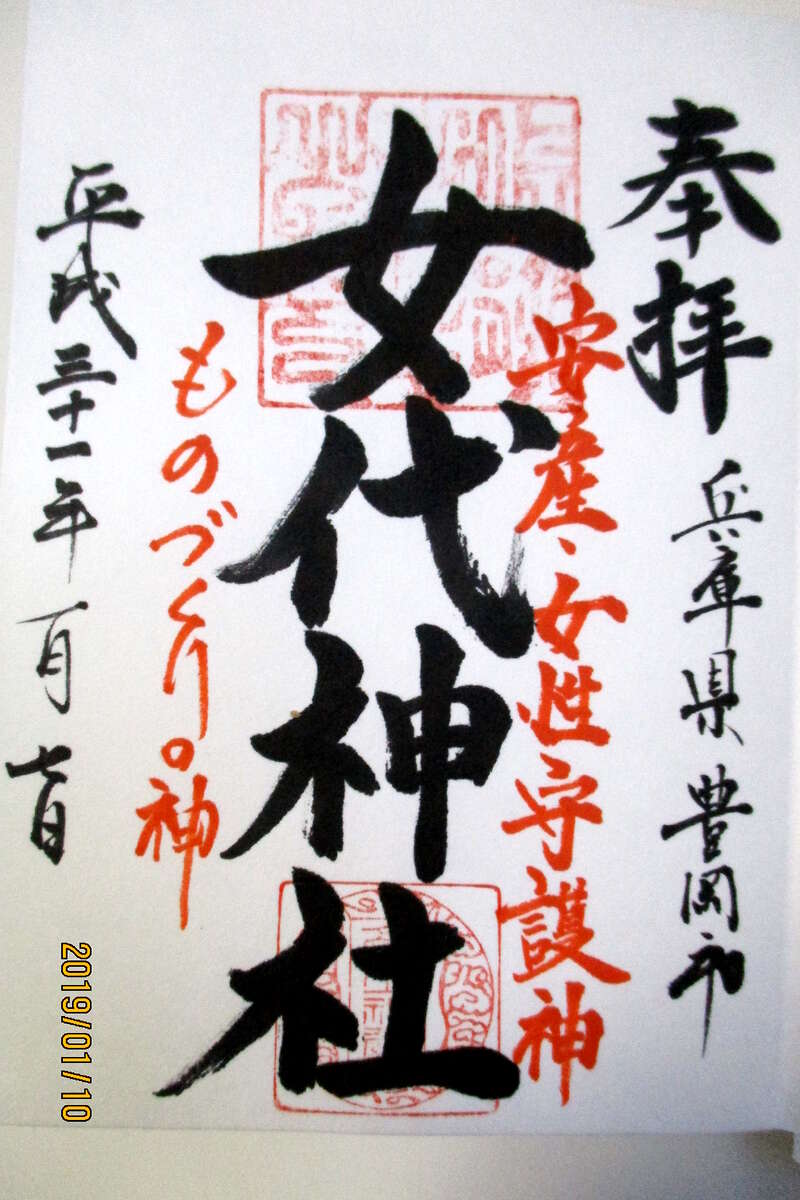 奉拝
兵庫県豊岡市
安産、女性守護神
女代神社
ものづくりの神
平成三十一年一月七日
2019/01/10